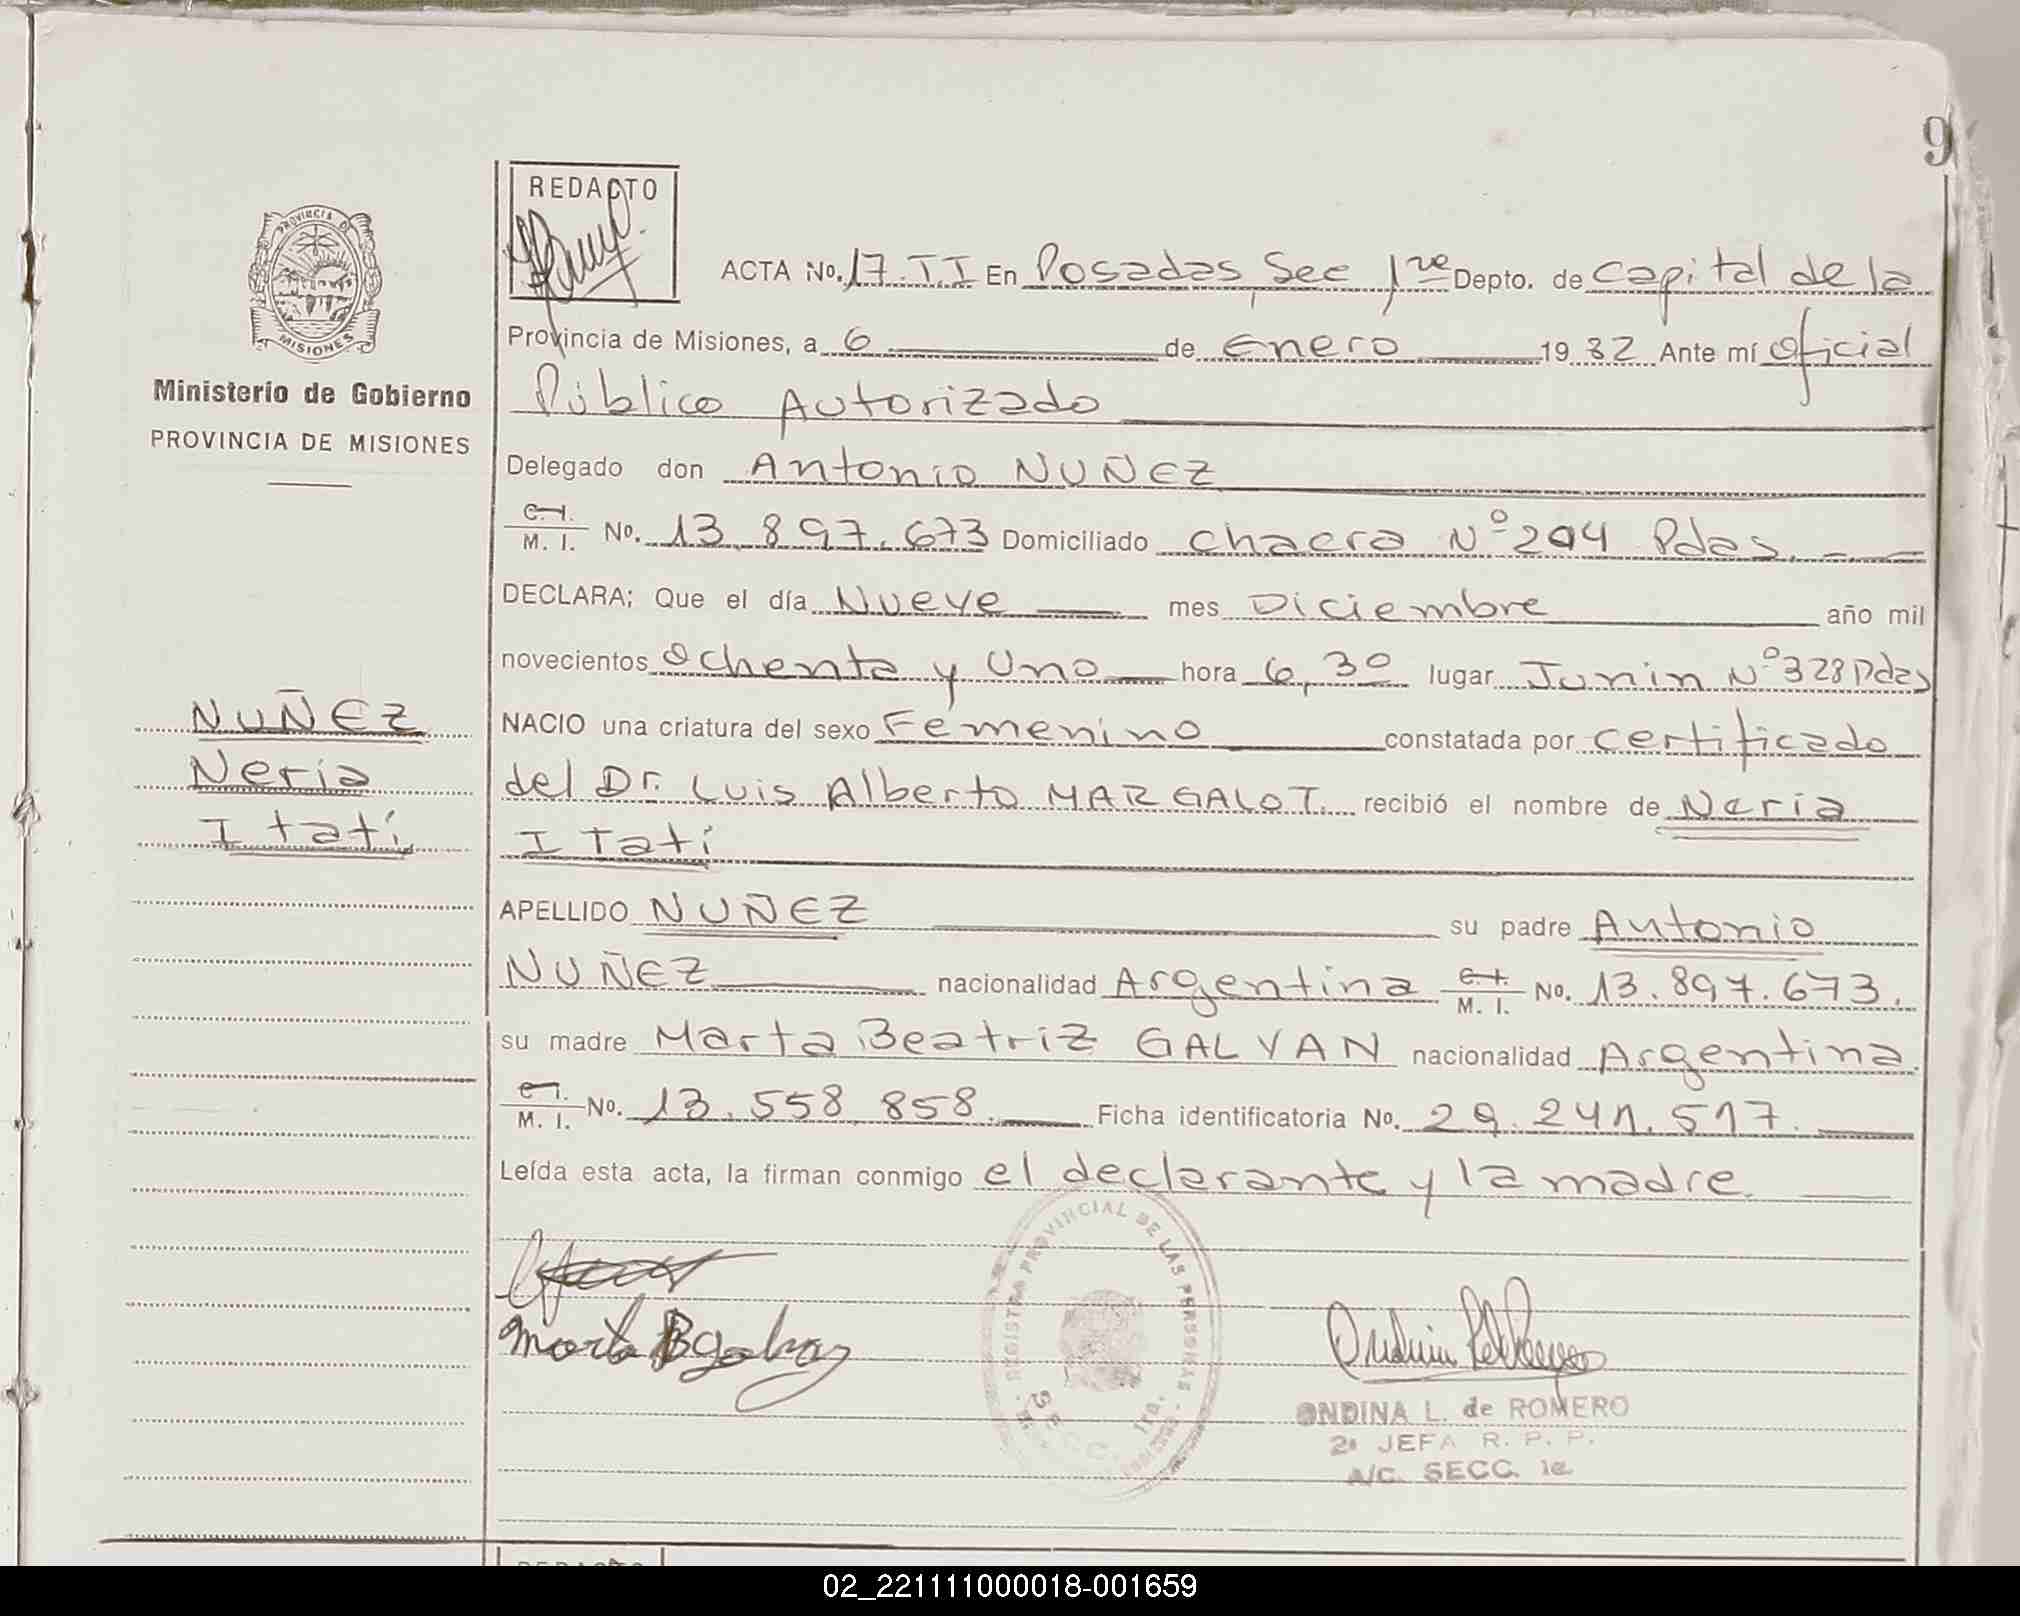 9
REDACTO
PROVINCIA DE
MISIONES
Ministerio de Gobierno
PROVINCIA DE MISIONES
NUÑEZ
Neria
Itatí
ACTA No. 17. II En Posadas, Sec 1ra Depto. de Capital de la
Provincia de Misiones, a 6 de Enero 1982 Ante mí oficial
Público Autorizado
Delegado don Antonio NUÑEZ
C. I. / M. I. No. 13.897.673 Domiciliado chacra Nº 204 Pdas.
DECLARA; Que el día Nueve mes Diciembre año mil
novecientos Ochenta y Uno hora 6,30 lugar Junin Nº 328 Pdas
NACIO una criatura del sexo Femenino constatada por certificado
del Dr. Luis Alberto MARGALOT. recibió el nombre de Neria
Itatí
APELLIDO NUÑEZ su padre Antonio
NUÑEZ nacionalidad Argentina C. I. / M. I. No. 13.897.673.
su madre Marta Beatriz GALVAN nacionalidad Argentina.
C. I. / M. I. No. 13.558.858. Ficha identificatoria No. 29.241.517.
Leída esta acta, la firman conmigo el declarante y la madre.
REGISTRO PROVINCIAL DE LAS PERSONAS
SECC. 1ra.
Marta B Galvan
ONDINA L. de ROMERO
2a JEFA R. P. P.
A/C. SECC. 1a
REDACTO
02_221111000018-001659